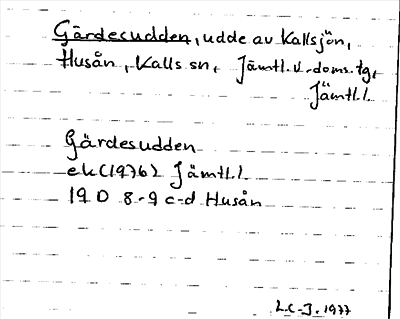 Gärdesudden, udde av Kallsjön,
Husån, Kalls sn, Jämtl. v. doms. tg,
Jämtl. l.
Gärdesudden
ek (1976) Jämtl. l
19 D 8-9 c-d Husån
L.C-J. 1977